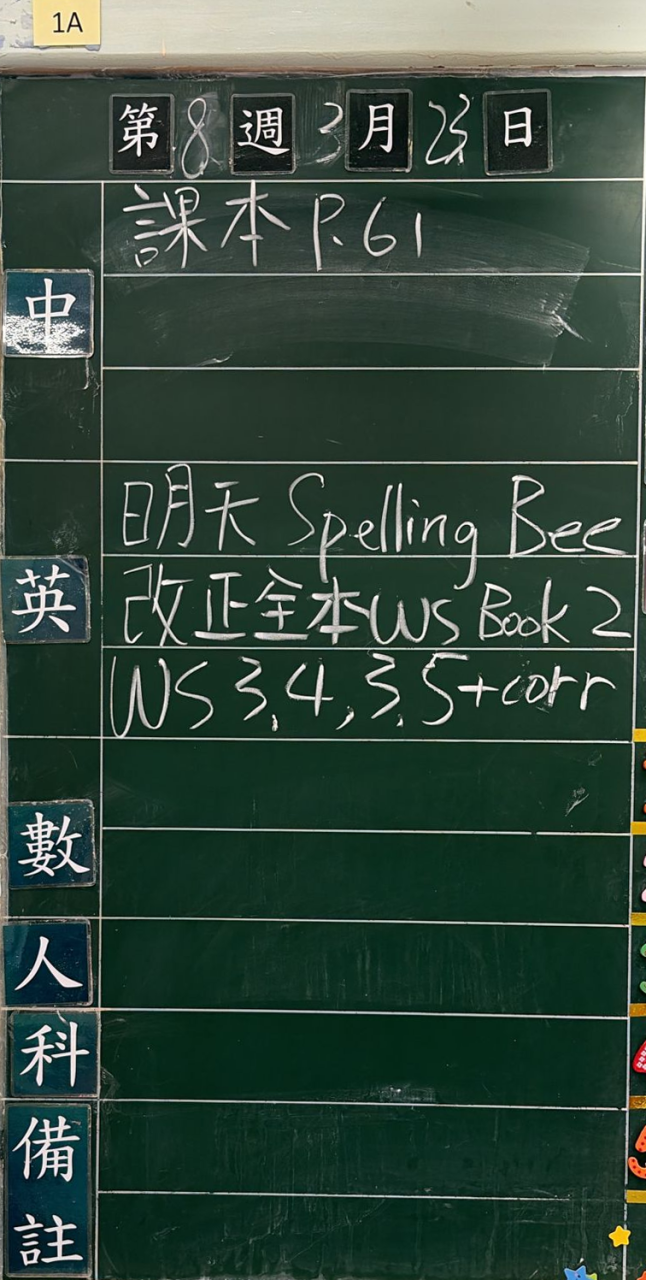 1A
第8週3月23日
課本 P.61
中
明天 Spelling Bee
英
改正全本WS Book 2
WS 3.4, 3.5+corr
數
人
科
備
註